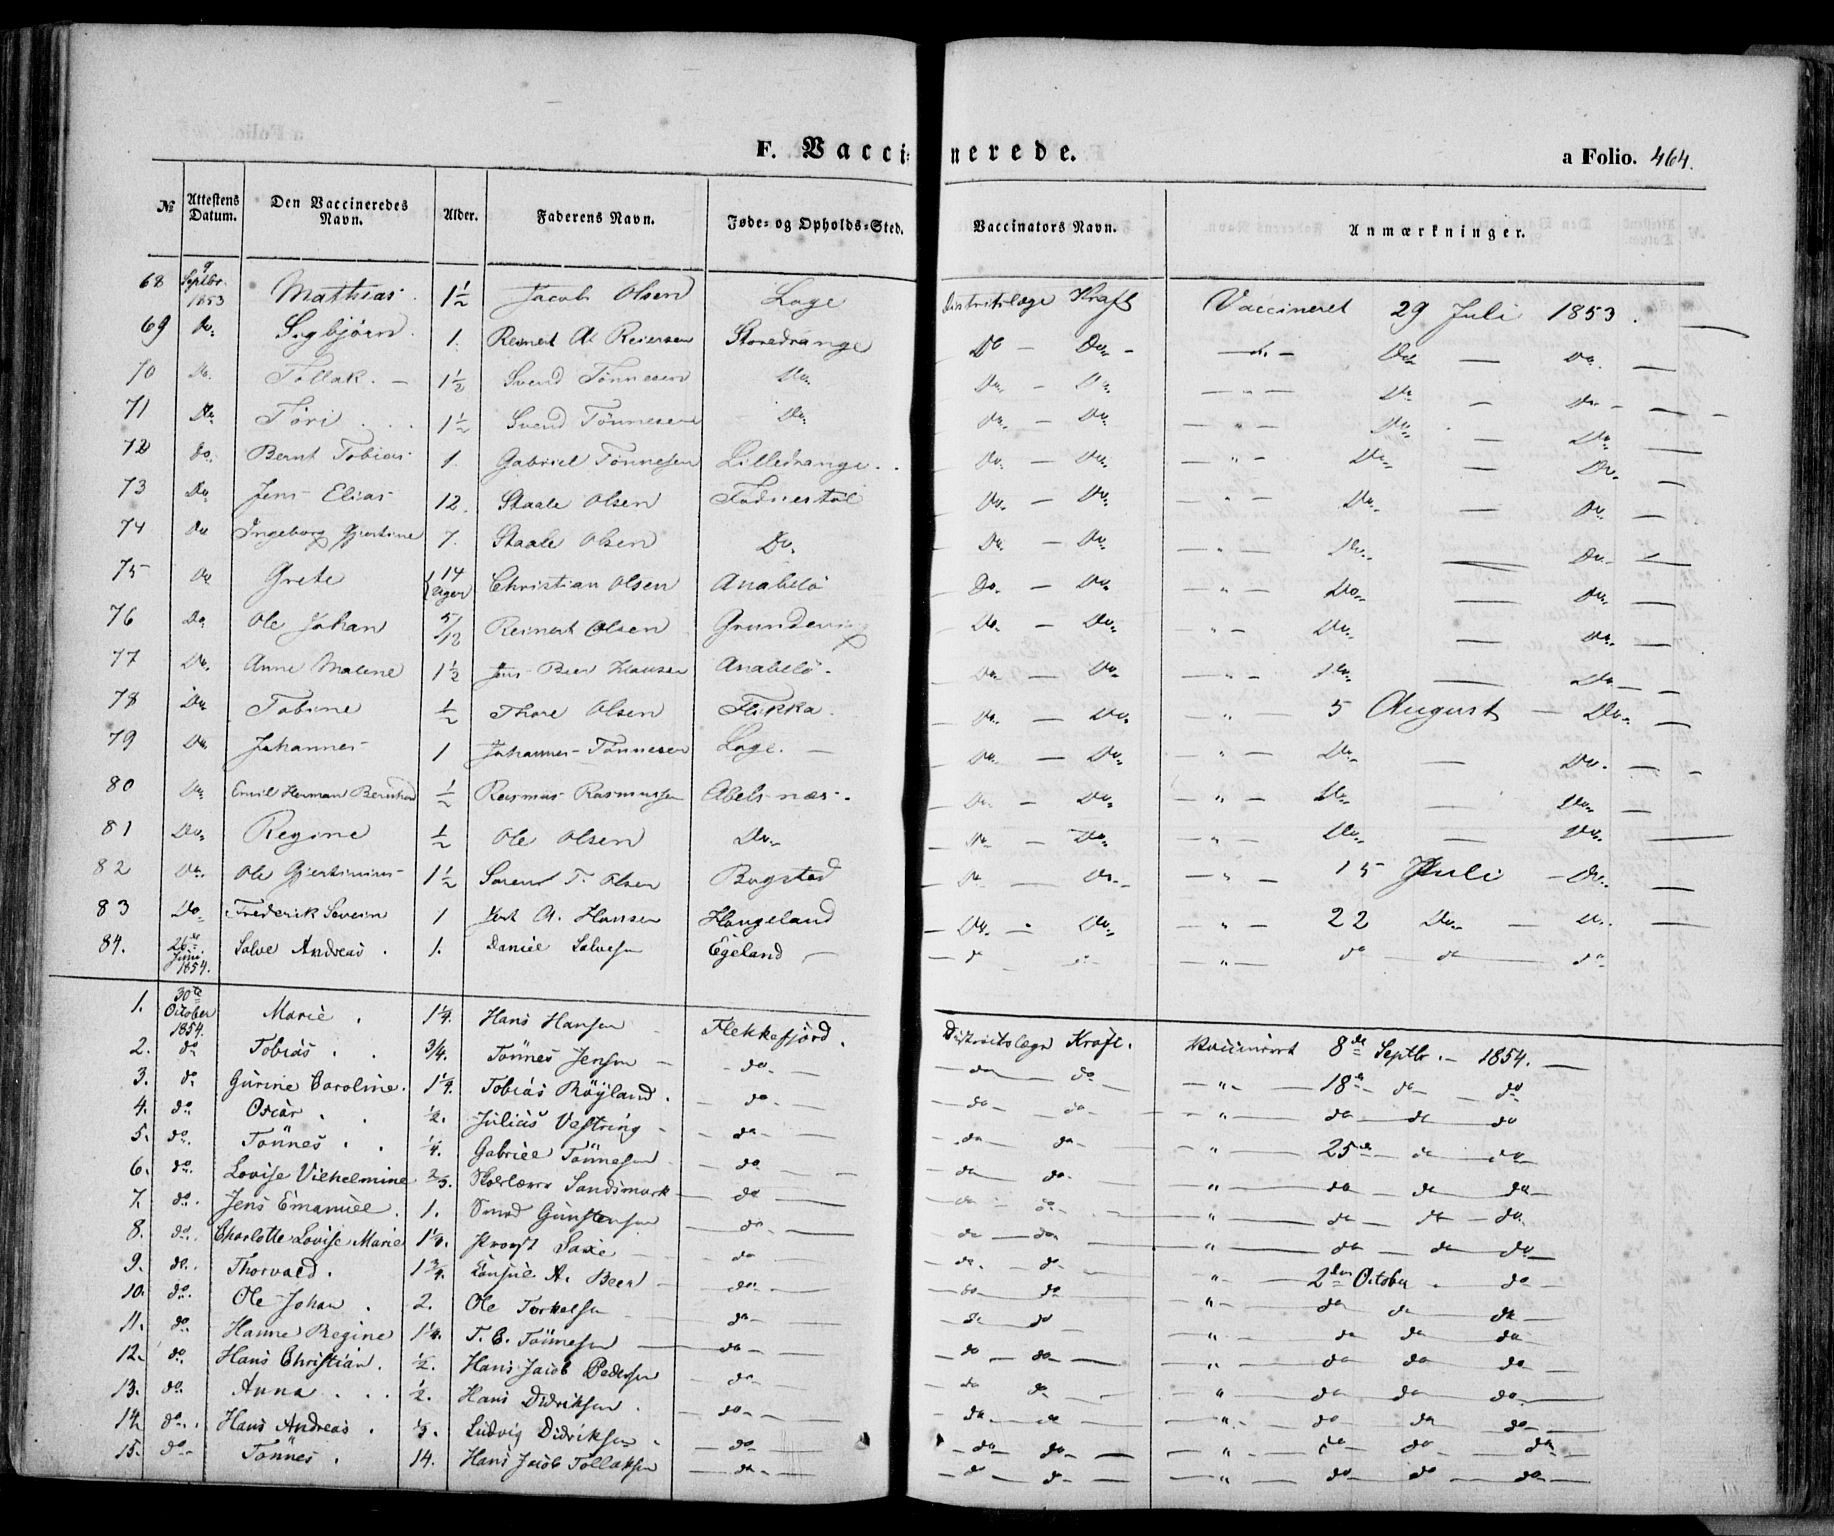 F. Vaccinerede.
a Folio. 464.
№ | Attestens Datum. | Den Vaccineredes Navn. | Alder. | Faderens Navn. | Føde- og Opholds-Sted. | Vaccinators Navn. | Anmærkninger.
68 | 9 Septbr. 1853 | Mathias | 1½ | Jacob Olsen | Loge | Distritslæge Kraft | Vaccineret 29 Juli 1853.
69 | Do. | Sigbjørn | 1. | Reinert A. Reiersen | Storedrange | Do — Do. | — Do. — Do.
70 | Do. | Tollak. | 1½ | Svend Tønnesen | Do. | Do. — Do. | — „ — Do. — Do.
71 | Do | Tori | 1½ | Svend Tønnesen | Do. | Do. — Do. | — „ — Do. — Do.
72 | Do. | Bernt Tobias | 1. | Gabriel Tønnesen | Lilledrange | Do. — Do. | — „ — Do. — Do.
73 | Do. | Jens Elias | 12. | Staale Olsen | | Do. — Do. | — „ — Do. — Do.
74 | Do | Ingeborg Gjertine | 7. | Staale Olsen | Do. | Do. — Do. | — „ — Do. — Do.
75 | Do | Grete | 14 Uger | Christian Olsen | Anabelø | Do. — Do. | — „ — Do. — Do.
76 | Do. | Ole Johan | 5/12 | Reinert Olsen | | Do. — Do. | — „ — Do. — Do.
77 | Do. | Anne Malene | 1½ | Jens Beer Hansen | Anabelø. | Do. — Do. | — „ — Do. — Do.
78 | Do. | Tobine | ½ | Thore Olsen | Flikka. | Do. — Do. | — „ — 5 August — Do.
79 | Do. | Johannes | 1 | Johannes Tønnesen | Loge. | Do. — Do. | — „ — Do. — Do.
80 | Do. | Emil Herman Bernhard | ½ | Rasmus Rasmussen | Abelsnæs. | Do. — Do. | — „ — Do. — Do.
81 | Do. | Regine | ½ | Ole Olsen | Do. | Do. — Do. | — „ — Do. — Do.
82 | Do. | Ole Gjertinius | 1½ | Sørend T. Olsen | Bogstad | Do. — Do. | — „ — 15 Juli — Do.
83 | Do. | Frederik Severin | 1 | A. Hansen | Haugeland | Do. — Do. | — „ — 22 Do. — Do.
84. | 26de Juni 1854. | Salve Andreas. | 1. | Daniel Salvesen | Egeland | — do — do | „ do do do
1. | 30te October 1854. | Marie. | 1¼. | Hans Hansen | Flekkefjord. | Distritslæge Kraft. | Vaccineret 8de Septbr. — 1854.
2. | do | Tobias. | 3/4. | Tønnes Jensen | do | do do | — „ — 18de do — do
3. | do | Gurine Caroline. | 1¼. | Tobias Røyland. | do | do — do | — „ — do do do
4. | do. | Oscar. | ½. | Julius Vestring | do | do do | „ 25de do do
5. | do. | Tønnes. | ¼. | Gabriel Tønnesen | do | do do. | „ do do do
6. | do. | Lovise Vilhelmine | | Sandsmark | do | do do. | „ do do do.
7. | do. | Jens Emanuel. | 1. | Smed Gunstensen | do | do do | „ do do do
8. | do. | Charlotte Lovise Marie | | Provst Saxe | do | do. do | „ 2den October. do
9. | do. | Thorvald. | 1¾. | Consul A. Beer | do | do do | „ do do do
10. | do. | Ole Johan. | 2. | Ole Torkelsen | do | do do | „ do do do
11. | do. | Hanne Regine | 1¼. | T. E. Tønnesen | do | do do | „ do do do
12. | do. | Hans Christian. | ½. | Hans Jacob Pedersen | do | do do | „ do do do.
13. | do. | Anna | ½. | Hans Didriksen. | do | do. do | „ do do do
14. | do. | Hans Andreas. | | Ludvig Didriksen. | do | do do | „ do do do
15. | do | Tønnes. | 14. | Hans Jacob Tollaksen | do | do do | „ do do do